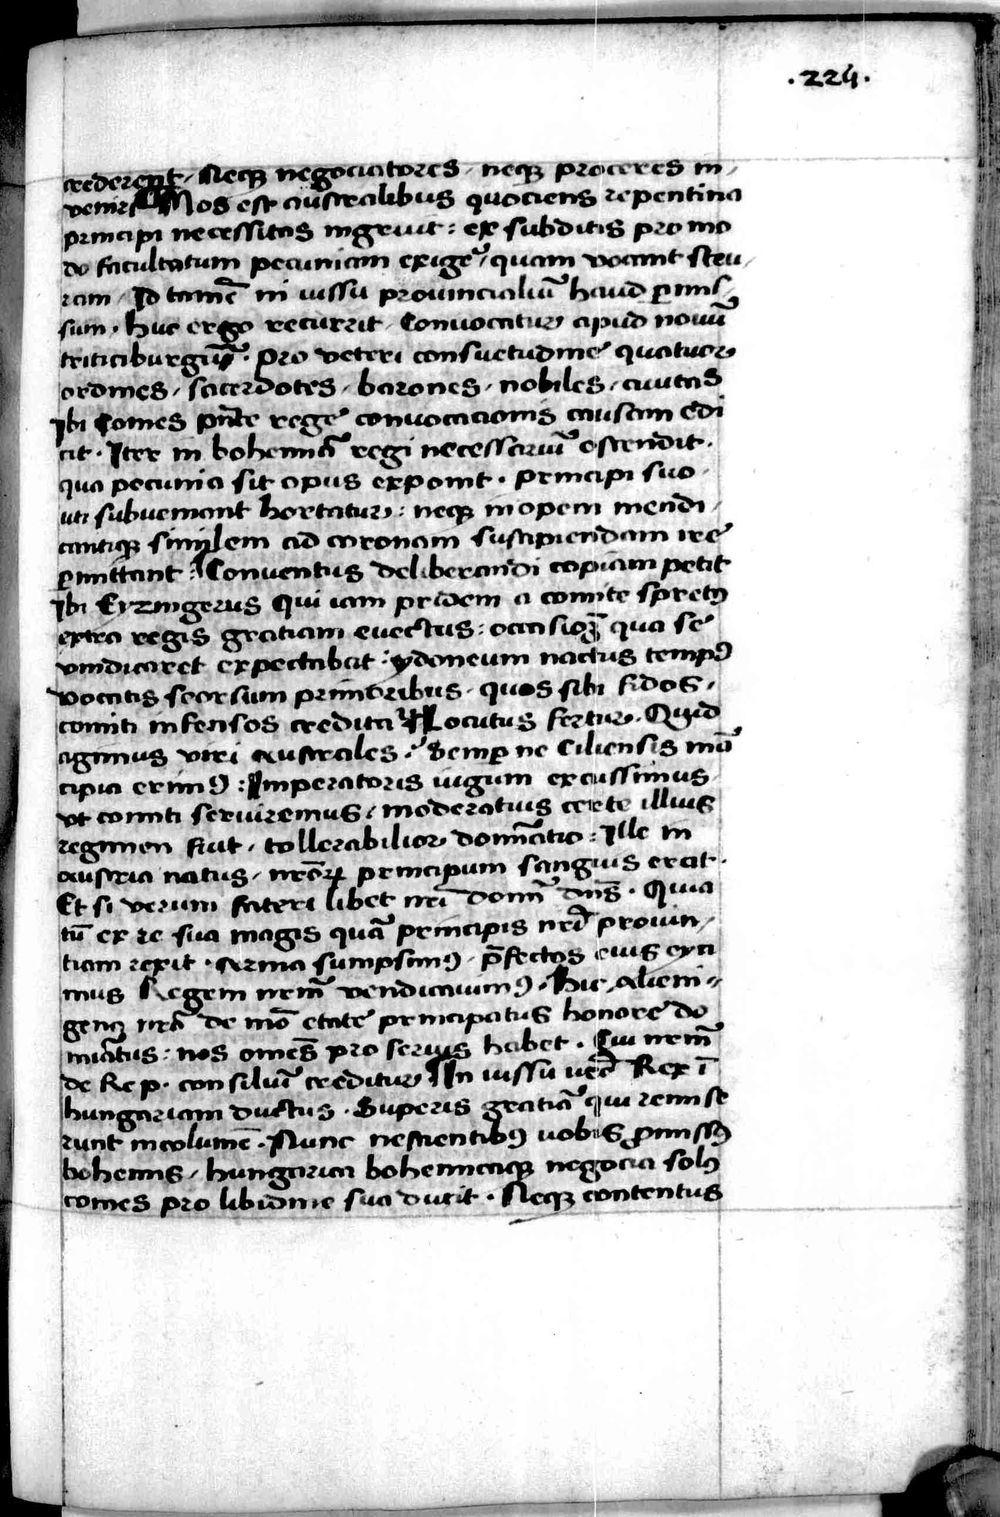 .224.
crederent, Neqȝ negociatores, neqȝ proceres in,
venirs Mos est australibus quociens repentina
principi necessitas ingruit: ex subditis pro mo
do facultatum pecuniam exigē, quam vocant steu,
ram, Id tamē in iussu prouincialiū haud ꝑmis,
sum. huc ergo recurrit, Conuocatur apud nouū
triticiburgiū. Pro veteri consuetudine quatuor
ordines, sacerdotes, barones, nobiles, ciuitas
Ibi Comes pn̄te rege conuocacionis causam edi
cit. Iter in bohemiā regi necessariū ostendit.
qua pecunia sit opus exponit. Principi suo
uti subueniant hortatur: neqȝ inopem mendi,
cantiqȝ similem ad coronam suscipiendam ire
ꝑmittant: Conuentus deliberandi copiam petit
Ibi Eyzingerus Qui iam pridem a comite spretꝰ
extra regis gratiam euectus: occasionē qua se
vindicaret expectabat: ydoneum nactus tempꝰ
vocatis seorsum primoribus, quos sibi fidos,
comiti infensos credita Locutus fertur. Quid
agimus viri australes: Semꝑ ne Ciliensis mā
cipia erimꝰ: Imperatoris iugum excussimus
vt comiti seruiremus, moderatius certe illius
regimen fuit, tollerabilior domīatio: Ille in
austria natus, nr̄oꝝ principum sanguis erat.
Et si verum fateri libet nr̄i domī dn̄s. Quia
tū ex re sua magis quā principis nr̄i prouin,
tiam rexit. Arma sumpsimꝰ, p̄fectos eius eyci
mus Regem nr̄m vendicauimꝰ. Hic, alieni,,
genꝰ nr̄a de mō etate principatus honore do
miātus: nos om̄es pro seruis habet. Cui nr̄m
de Re p. consiliū creditur In iussu nr̄o Rex ī
hungariam ductus. Superis gratiā qui remise
runt incolumē. Nunc nescientibꝰ nobis ꝑmissꝰ
bohemis, hungarica bohemicaqȝ negocia solꝰ
comes pro libidine sua ducit. Neqȝ contentus